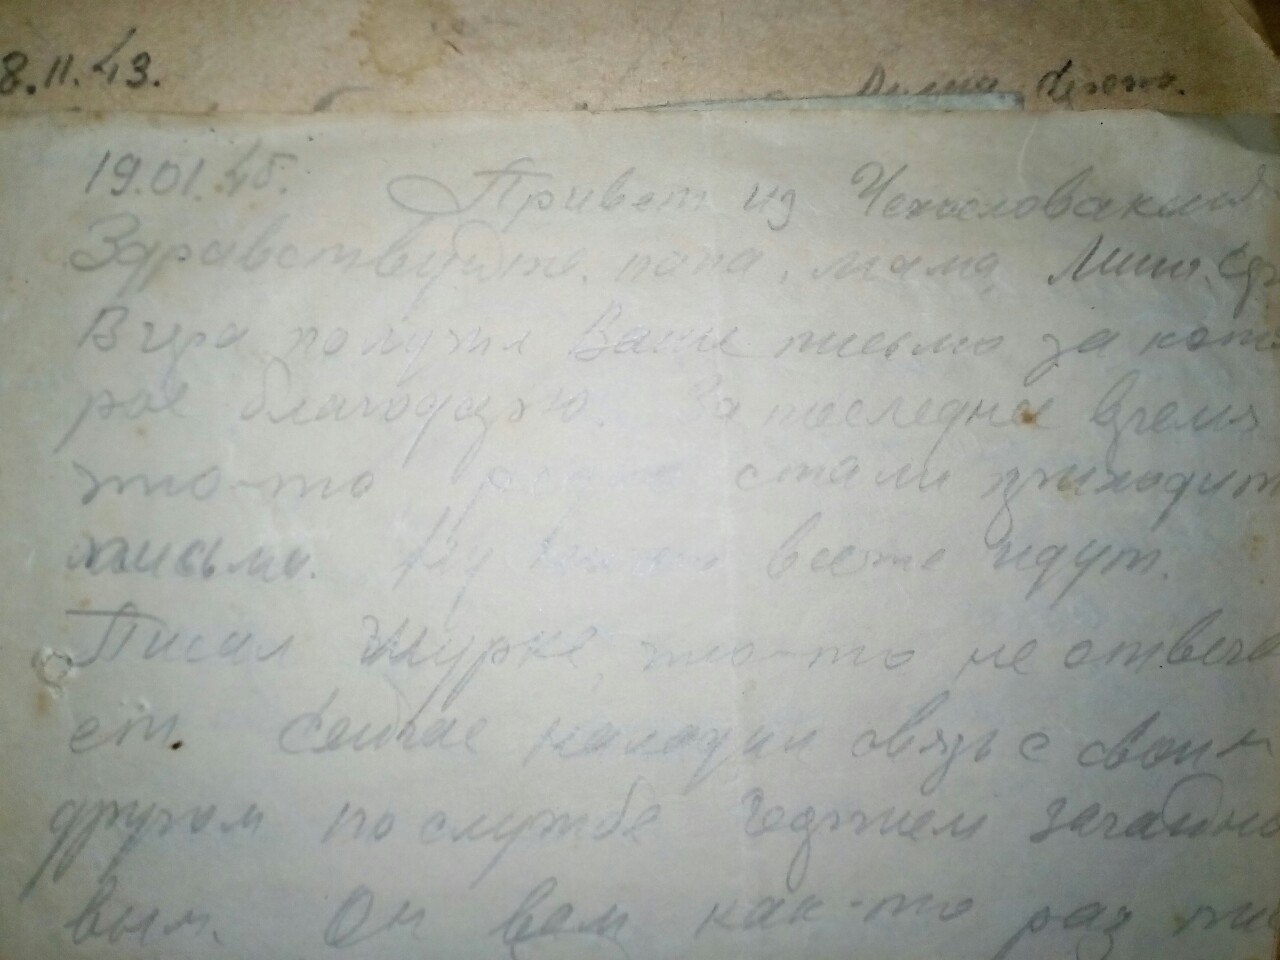 8.11.43.
19.01.45. Привет из Чехословакии
Здравствуйте, папа, мама,
Вчера получил Ваше письмо за кот
рое благодарю. За последнее время
что-то редко стали приходит
письма. Ну все же идут.
Писал Шурке что-то не отвеча
ет. Сейчас наладил связь с своим
другом по службе
вым. Он вам как-то раз пи